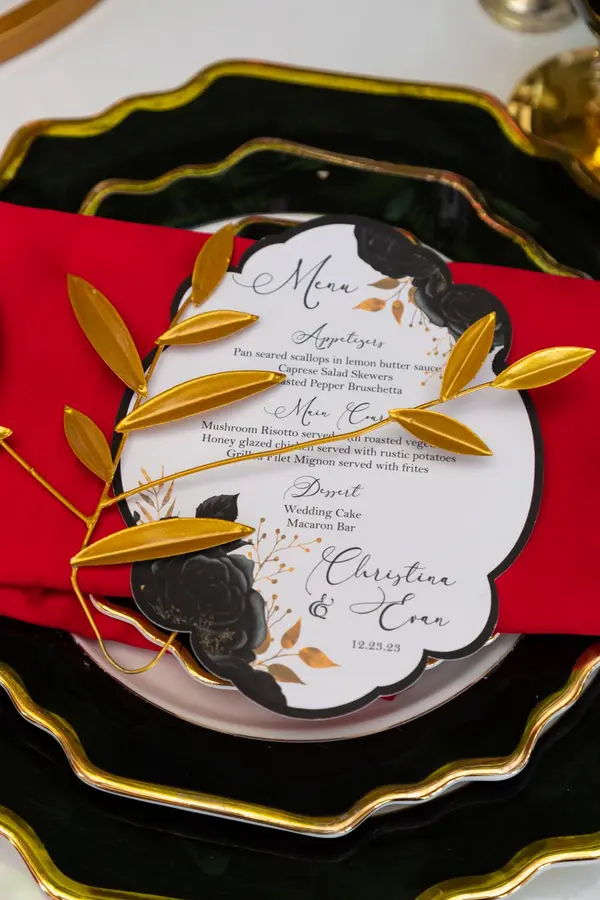 Menu
Appetizers
Pan seared scallops in lemon butter sauce
Caprese Salad Skewers
Pepper Bruschetta
Main
Mushroom Risotto served roasted
Honey glazed chicken served with rustic potatoes
Grilled Filet Mignon served with frites
Dessert
Wedding Cake
Macaron Bar
Christina
&
Evan
12.23.23